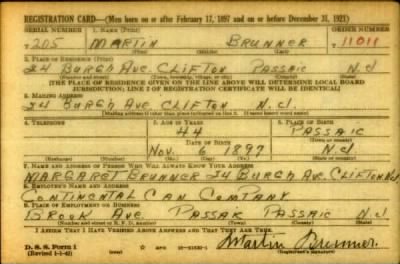 REGISTRATION CARD—(Men born on or after February 17, 1897 and on or before December 31, 1921)
SERIAL NUMBER 1. NAME (Print) ORDER NUMBER
T 205 MARTIN BRUNNER 11011
(First) (Middle) (Last)
2. PLACE OF RESIDENCE (Print)
24 BURGH AVE. CLIFTON PASSAIC N.J
(Number and street) (Town, township, village, or city) (County) (State)
[THE PLACE OF RESIDENCE GIVEN ON THE LINE ABOVE WILL DETERMINE LOCAL BOARD
JURISDICTION; LINE 2 OF REGISTRATION CERTIFICATE WILL BE IDENTICAL]
3. MAILING ADDRESS
24 BURGH AVE CLIFTON N.J.
[Mailing address if other than place indicated on line 2. If same insert word same]
4. TELEPHONE 5. AGE IN YEARS 6. PLACE OF BIRTH
44 PASSAIC
DATE OF BIRTH (Town or county)
NOV. 6 1897 N.J
(Exchange) (Number) (Mo.) (Day) (Yr.) (State or country)
7. NAME AND ADDRESS OF PERSON WHO WILL ALWAYS KNOW YOUR ADDRESS
MARGARET BRUNNER 24 BURGH AVE. CLIFTON N.J
8. EMPLOYER'S NAME AND ADDRESS
CONTINENTAL CAN COMPANY
9. PLACE OF EMPLOYMENT OR BUSINESS
BROOK AVE PASSAIC PASSAIC N.J
(Number and street or R. F. D. number) (Town) (County) (State)
I AFFIRM THAT I HAVE VERIFIED ABOVE ANSWERS AND THAT THEY ARE TRUE.
D. S. S. Form 1
(Revised 1-1-42) Martin Brunner
(Registrant's signature)